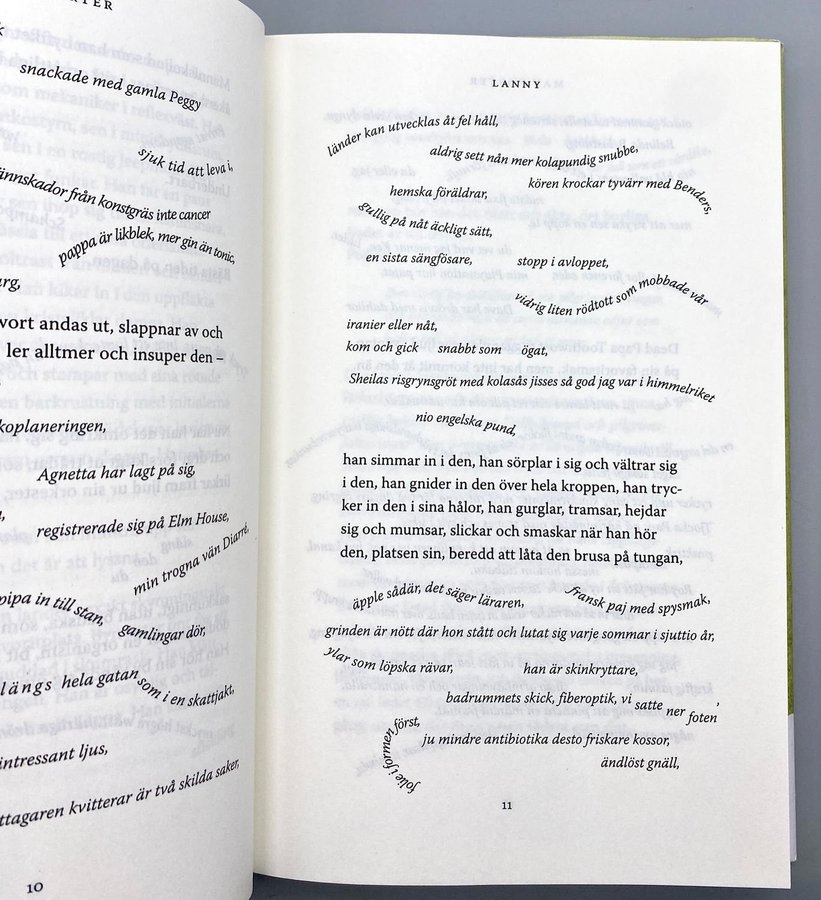 snackade med gamla Peggy
sjuk tid att leva i,
från konstgräs inte cancer
pappa är likblek, mer gin än tonic,
andas ut, slappnar av och
ler alltmer och insuper den –
Agnetta har lagt på sig,
registrerade sig på Elm House,
min trogna vän Diarré,
pipa in till stan,
gamlingar dör,
längs hela gatan som i en skattjakt,
ljus,
kvitterar är två skilda saker,
10
LANNY
länder kan utvecklas åt fel håll,
aldrig sett nån mer kolapundig snubbe,
kören krockar tyvärr med Benders,
hemska föräldrar,
gullig på nåt äckligt sätt,
en sista sängfösare,
stopp i avloppet,
vidrig liten rödtott som mobbade vår
iranier eller nåt,
kom och gick snabbt som ögat,
Sheilas risgrynsgröt med kolasås jisses så god jag var i himmelriket
nio engelska pund,
han simmar in i den, han sörplar i sig och vältrar sig
i den, han gnider in den över hela kroppen, han tryc-
ker in den i sina hålor, han gurglar, tramsar, hejdar
sig och mumsar, slickar och smaskar när han hör
den, platsen sin, beredd att låta den brusa på tungan,
äpple sådär, det säger läraren,
fransk paj med spysmak,
grinden är nött där hon stått och lutat sig varje sommar i sjuttio år,
ylar som löpska rävar,
han är skinkryttare,
badrummets skick, fiberoptik, vi satte ner foten,
folie i formen först,
ju mindre antibiotika desto friskare kossor,
ändlöst gnäll,
11